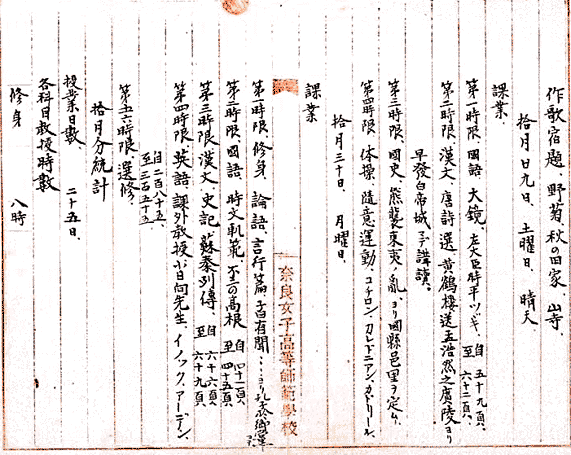 作歌宿題、野菊、秋の田家、山寺、
拾月廿九日、土曜日、晴天、
課業、
第一時限、國語、大鏡、左大臣時平ツヾキ、自五十九頁、至六十二頁、
第二時限、漢文、唐詩選、黄鶴樓送孟浩然之廣陵ヨリ
早發白帝城マデ講讀。
第三時限、國史、熊襲東夷ノ亂ヨリ國縣邑里ヲ定ム、
第四時限、体操、隨意運動、コチロン、カレドニアン、カドリール、
拾月三十日、月曜日、
課業
奈良女子高等師範學校
第一時限、修身、論語、言行篇、子曰有聞……ヨリ
第二時限、國語、時文軌範、不二の高根、自四十一頁、至四十五頁、
第三時限、漢文、史記、蘇秦列傳、自六十六頁、至六十九頁、
第四時限、英語、課外教授、小日向先生、イノック、アーデン、
自二百八十五、至三百五十五、
第五六時限、選修、
拾月分統計
授業日數、二十五日、
各科目教授時數
修身 八時